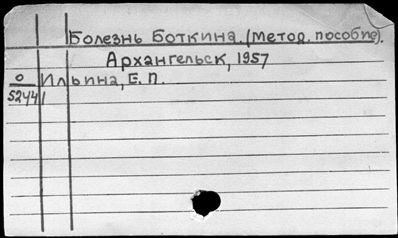 Болезнь Боткина. (метод. пособие).
Архангельск, 1957
О Ильина, Е. П.
5244